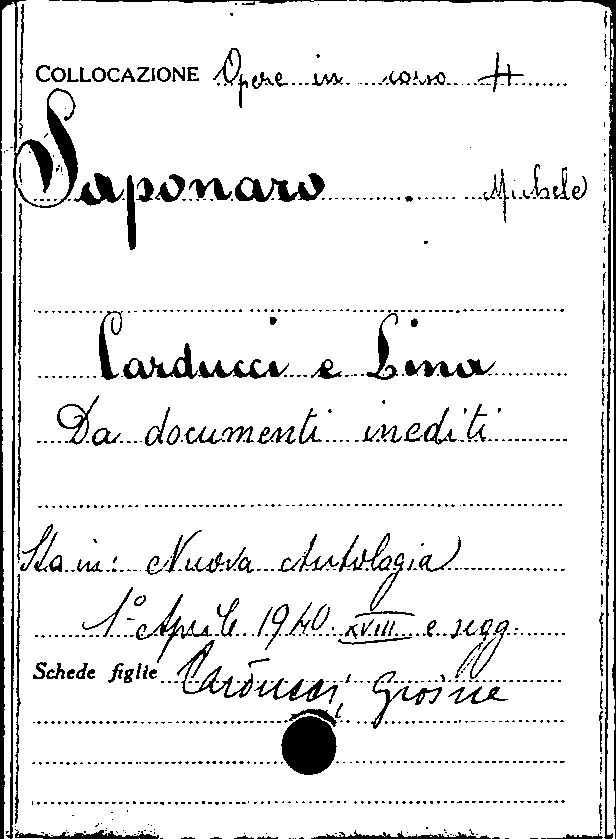 COLLOCAZIONE Opere in corso H
Saponaro . Michele
Carducci e Lina
Da documenti inediti
Sta in: Nuova Antologia
1º Aprile 1940 XVIII e segg.
Schede figlie Carducci, Giosue